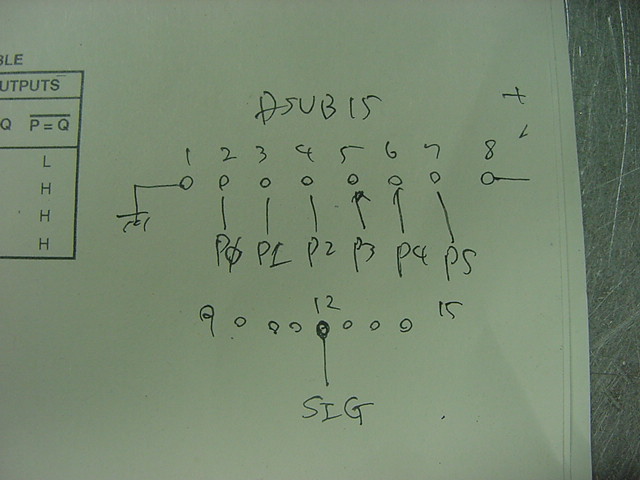 BLE
UTPUTS
Q P = Q
L
H
H
H
DSUB15
+
1 2 3 4 5 6 7 8
P0 P1 P2 P3 P4 P5
9 12 15
SIG